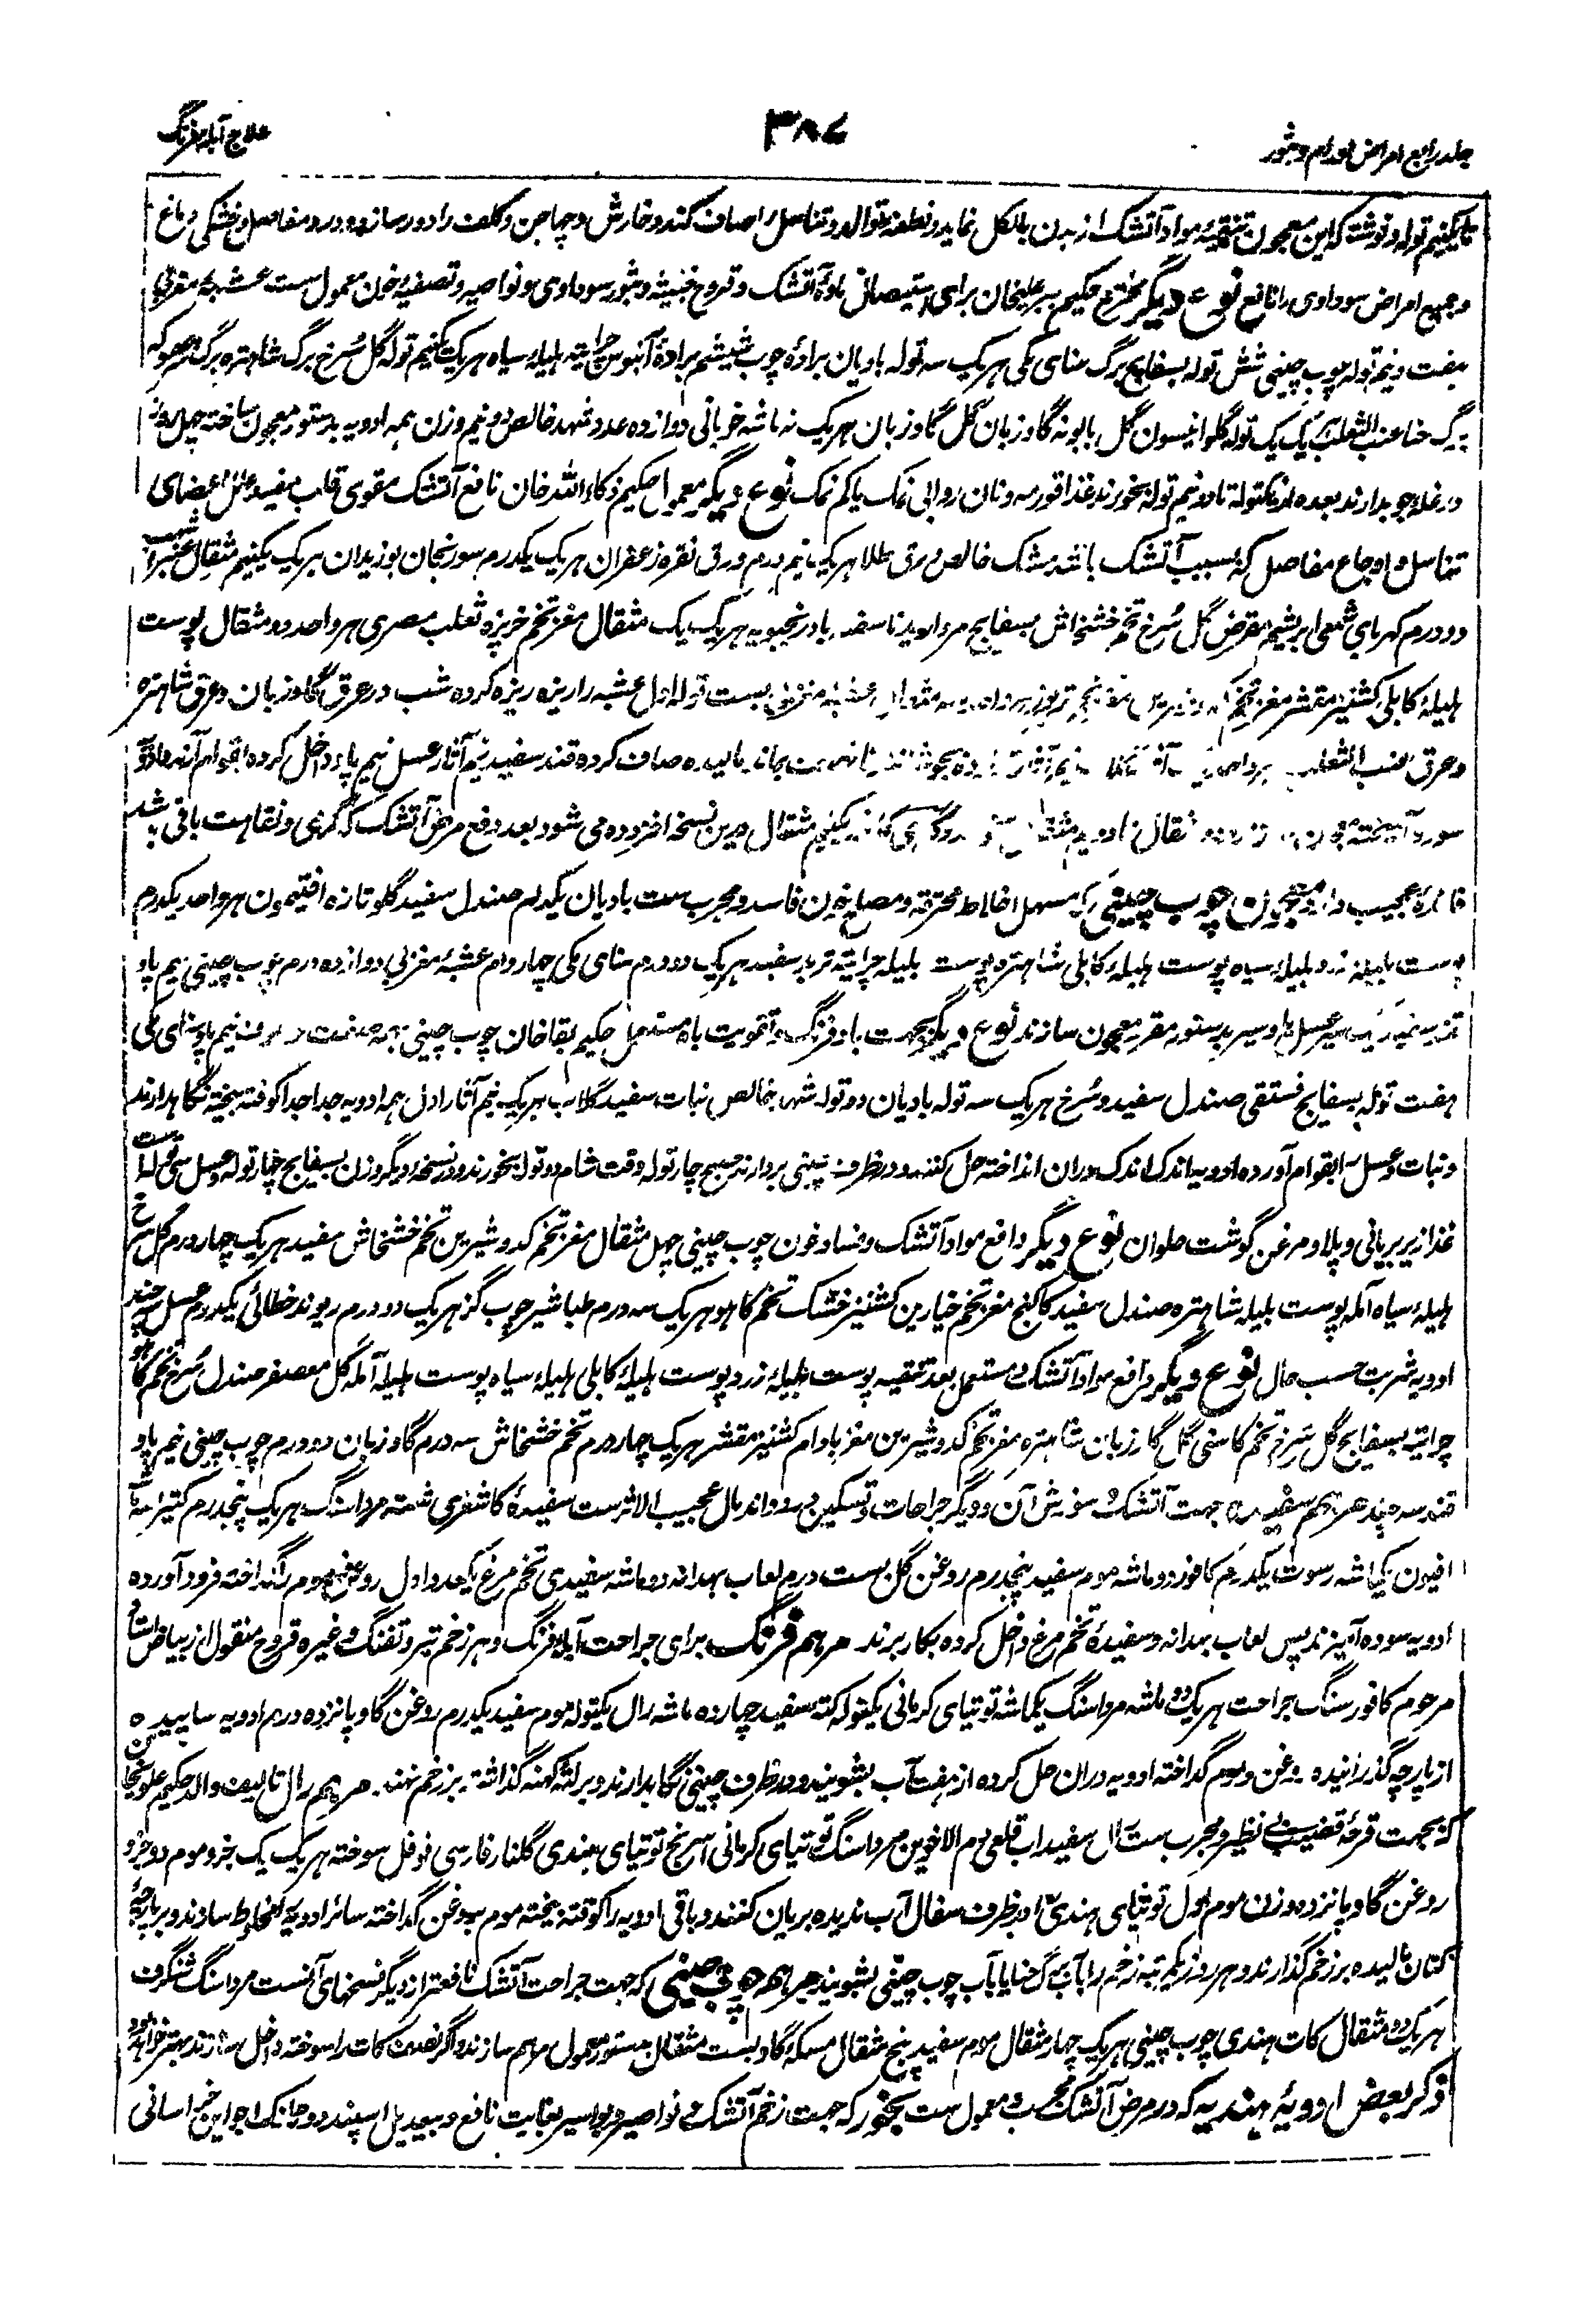 جلد رابع امراض اورام و بثور
۳۸۷
علاج آبلهٔ فرنگ
تا یکنیم توله و نوشته که این معجون تنقیهٔ مواد آتشک از بدن بالکل نماید و نطفهٔ توالد و تناسل را صاف کند و خارش و چهاجن و کلف را دور سازد و درد مفاصل و خشکی دماغ
و جمیع امراض سوداوی را نافع نوع دیگر مخترع حکیم ببر علیخان برای استیصال مادهٔ آتشک و قروح خبیثه و بثور سوداوی و نواصیر و تصفیهٔ خون معمول ست عشبهٔ مغربی
هفت و نیم توله چوب چینی شش توله بسفایج برگ سنای مکی هر یک سه توله بادیان برادهٔ چوب شیشم برادهٔ آبنوس چرایته هلیلهٔ سیاه هر یک یکنیم توله گل سرخ برگ شاهتره برگ
برگ حنا عنب الثعلب یک یک توله گلو انیسون گل بابونه گاوزبان گل گاوزبان هر یک نه ماشه خربانی دوازده عدد شهد خالص دو نیم وزن همه ادویه بدستور معجون ساخته چهل روز
در غله جو بدارند بعده از یکتوله تا دو نیم توله بخورند غذا قورمه و نان روابی نمک یا کم نمک نوع دیگر معمول حکیم ذکاء الله خان نافع آتشک مقوی قلب مفید علل اعضای
تناسل و اوجاع مفاصل که بسبب آتشک باشد مشک خالص ورق طلا هر یک نیم درم ورق نقره زعفران هر یک یکدرم سورنجان بوزیدان هر یک یکنیم مثقال عنبر اشهب
دو درم کهربای شمعی ابریشم مقرض گل سرخ تخم خشخاش بسفایج مروارید ناسفته بادرنجبویه هر یک یک مثقال مغز تخم خربزه ثعلب مصری هر واحد دو مثقال پوست
هلیلهٔ کابلی کشنیز مقشر مغز تخم تربوز هر واحد سه مثقال عشبهٔ مغربی بست توله اول عشبه را ریزه ریزه کرده شب در عرق گاوزبان و عرق شاهتره
و عرق عنب الثعلب بجوشانند تا نصف بماند مالیده صاف کرده قند سفید نیم آثار عسل نیم پاو داخل کرده بقوام آرند
مثقال یکنیم مثقال درین نسخه افزوده می شود بعد دفع مرض آتشک که گرمی و نقاهت باقی باشد
فائدهٔ عجیب دارد معجون چوب چینی که مسهل اخلاط محترقه و مصلح خون فاسد و مجرب ست بادیان یکدرم صندل سفید گلو تازه افتیمون هر واحد یکدرم
پوست هلیلهٔ زرد هلیلهٔ سیاه پوست هلیلهٔ کابلی شاهتره پوست بلیله چرایته تربد سفید هر یک دو درم سنای مکی چهار درم عشبهٔ مغربی دوازده درم چوب چینی نیم پاو
قند سفید عسل پاو سیر بدستور مقرر معجون سازند نوع دیگر بجهت باد فرنگ و تقویت باه مستعمل حکیم بقا خان چوب چینی نیم پاو سنای مکی
هفت توله بسفایج فستقی صندل سفید و سرخ هر یک سه توله بادیان دو توله شهد خالص نبات سفید گلاب هر یک نیم آثار اول همه ادویه جدا جدا کوفته بیخته نگاهدارند
و نبات و عسل را بقوام آورده ادویه اندک اندک دران انداخته حل کنند و در ظرف چینی بردارند صبح چار توله وقت شام دو توله بخورند و در نسخه دیگر وزن بسفایج چهار توله و عسل سی توله است
غذا زیر بریانی و پلاو مرغن گوشت حلوان نوع دیگر دافع مواد آتشک و فساد خون چوب چینی چهل مثقال مغز تخم کدو شیرین تخم خشخاش سفید هر یک چهار درم گل سرخ
هلیلهٔ سیاه آمله پوست بلیله شاهتره صندل سفید کاکنج مغز تخم خیارین کشنیز خشک تخم کاهو هر یک سه درم طباشیر چوب گز هر یک دو درم ریوند خطائی یکدرم عسل سه چند
ادویه شربت حسب حال نوع دیگر دافع مواد آتشک و مستعمل بعد تنقیه پوست هلیلهٔ زرد پوست هلیلهٔ کابلی هلیلهٔ سیاه پوست بلیله آمله گل معصفر صندل سرخ تخم کاهو
چرایته بسفایج گل سرخ تخم کاسنی گل گاوزبان شاهتره مغز تخم کدو شیرین مغز بادام کشنیز مقشر هر یک چهار درم تخم خشخاش سه درم گاوزبان دو درم چوب چینی نیم پاو
قند سه چند مرهم سفیده جهت آتشک و سوزش آن و دیگر جراحات و تسکین درد و اندمال عجیب الاثر ست سفیدهٔ کاشغری شسته مرداسنگ هر یک پنجدرم کتیرا
افیون یکماشه رسوت یکدرم کافور دو ماشه موم سفید پنجدرم روغن گل بست درم لعاب بهدانه دو ماشه سفیدی تخم مرغ یکعدد اول روغن و موم را گداخته فرود آورده
ادویه سوده آمیزند پس لعاب بهدانه و سفیدهٔ تخم مرغ داخل کرده بکار برند مرهم فرنگ برای جراحت آبلهٔ فرنگ و هر زخم تیر و تفنگ و غیره قروح منقول از بیاض استاد
مرحوم کافور سنگ جراحت هر یک دو ماشه مرداسنگ یکماشه توتیای کرمانی یکتوله کتهٔ سفید چهارده ماشه رال یکتوله موم سفید یکدرم روغن گاو پانزده درم ادویه ساییده
از پارچه گذرانیده روغن و موم گداخته ادویه دران حل کرده از هفت آب بشویند و در ظرف چینی نگاهدارند و بر لتهٔ کهنه گذاشته بر زخم نهند مرهم رال تالیف والد حکیم علویخان
که بجهت قرحهٔ قضیب بی نظیر و مجرب ست رال سفیداب قلعی دم الاخوین مرداسنگ توتیای کرمانی اسرنج توتیای هندی گلنار فارسی فوفل سوخته هر یک یک جزو موم دو جزو
روغن گاو پانزده وزن موم اول توتیای هندی را در ظرف سفال آب ندیده بریان کنند و باقی ادویه را کوفته بیخته موم بروغن گداخته سائر ادویه مخلوط سازند و بر پارچهٔ
کتان مالیده بر زخم گذارند و هر روز یکمرتبه زخم را بآب برگ حنا یا بآب چوب چینی بشویند مرهم چوب چینی که جهت جراحت آتشک نافعتر از دیگر نسخهای آنست مرداسنگ شنگرف
هر یک دو مثقال کات هندی چوب چینی هر یک چهار مثقال موم سفید پنج مثقال مسکهٔ گاو بست مثقال بدستور معمول مرهم سازند و اگر نصف کات را سوخته داخل سازند بهتر خواهد بود
ذکر بعض ادویهٔ هندیه که در مرض آتشک مجرب و معمول ست بخور که جهت زخم آتشک و نواصیر و بواسیر بغایت نافع و بیعدیل اسپند دو دانگ اجواین خراسانی